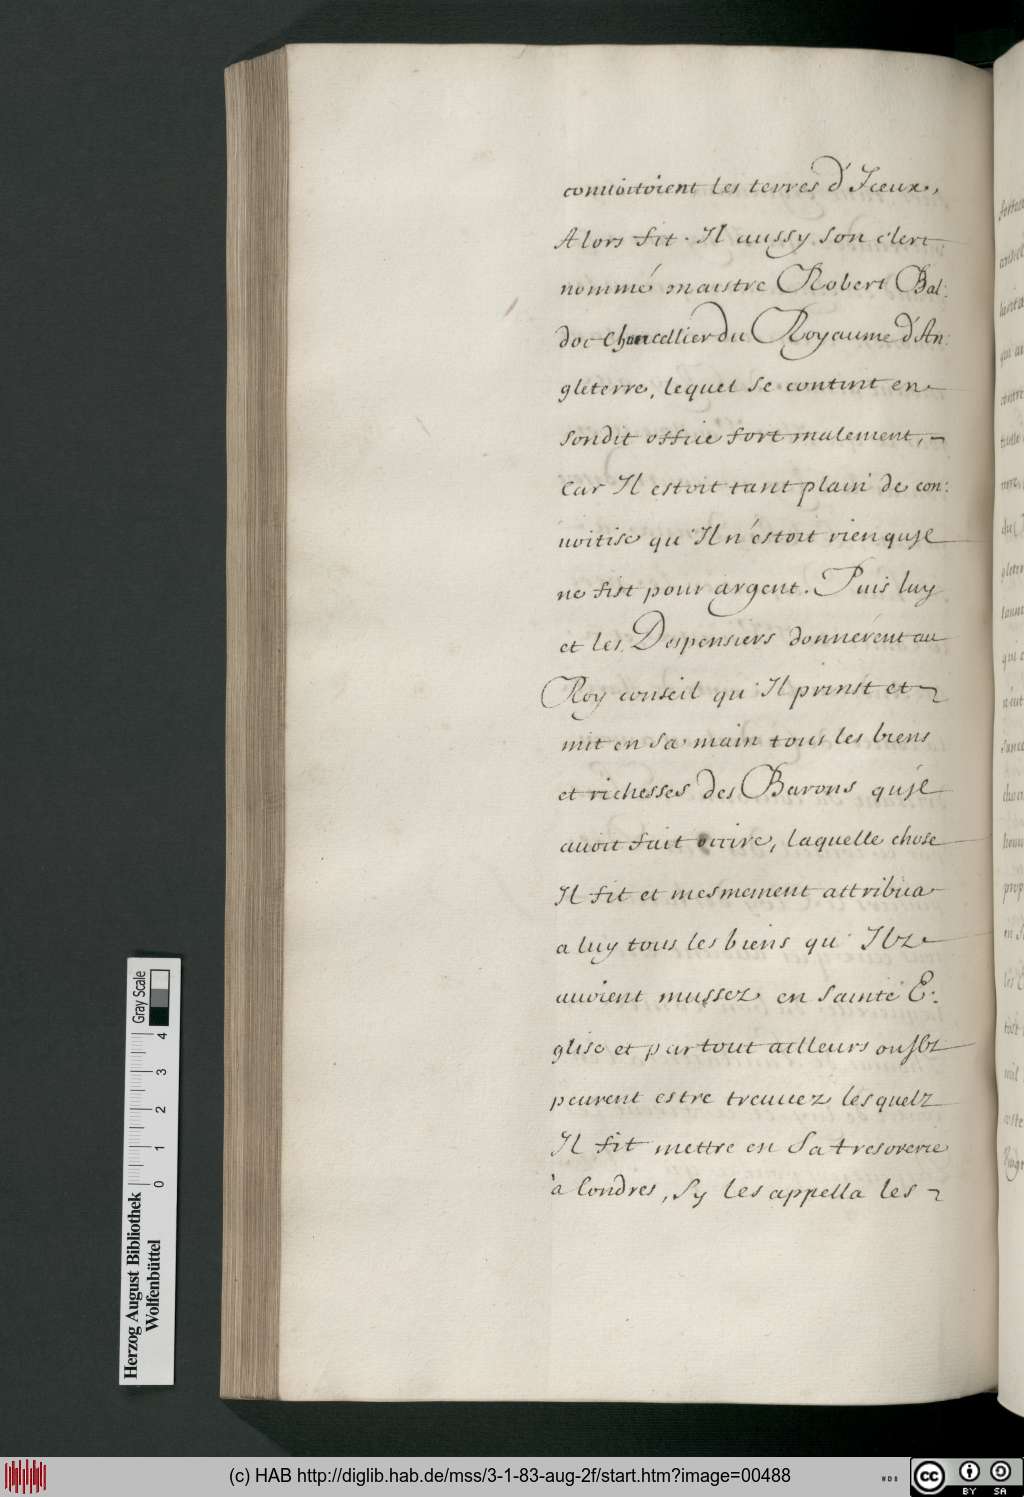 conuoitoient les terres d'Iceux,
Alors fit Il aussy son clerc
nommé maistre Robert Bal:
doc Chancellier du Royaume d'An:
gleterre, lequel se contint en
sondit office fort malement,
Car Il estoit tant plain de con:
uoitise qu'Il n'estoit rien qu'Il
ne fist pour argent. Puis luy
et les Despensiers donnérent au
Roy conseil qu'Il prinst et
mit en sa main tous les biens
et richesses des Barons qu'Il
auoit fait occire, laquelle chose
Il fit et mesmement attribua
a luy tous les biens qu'Ilz
auoient mussez en Sainte E:
glise et partout ailleurs ou Ilz
peurent estre treuuez lesquelz
Il fit mettre en Sa tresorerie
à Londres, Sy les appella les
Gray Scale
0 1 2 3 4
Herzog August Bibliothek
Wolfenbüttel
(c) HAB http://diglib.hab.de/mss/3-1-83-aug-2f/start.htm?image=00488
cc BY SA